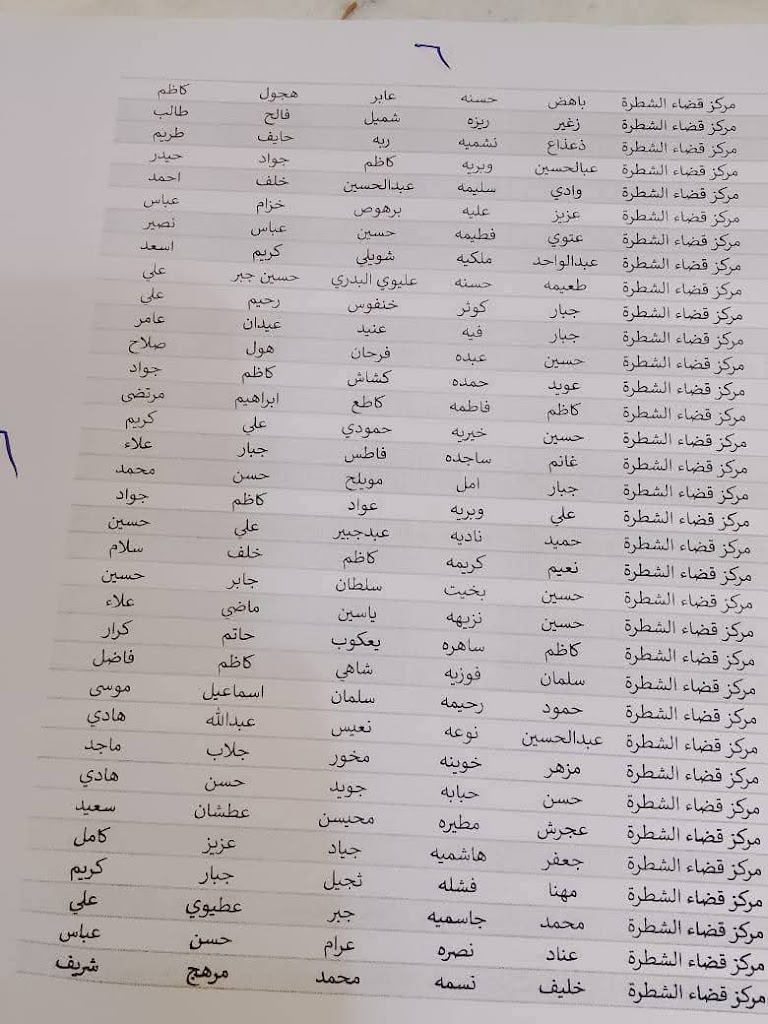 ٦
مركز قضاء الشطرة باهض حسنه عابر هجول كاظم
مركز قضاء الشطرة زغير ريزه شميل فالح طالب
مركز قضاء الشطرة ذعذاع نشميه ربه حايف طريم
مركز قضاء الشطرة عبالحسين وبريه كاظم جواد حيدر
مركز قضاء الشطرة وادي سليمه عبدالحسين خلف احمد
مركز قضاء الشطرة عزيز عليه برهوص خزام عباس
مركز قضاء الشطرة عتوي فطيمه حسين عباس نصير
مركز قضاء الشطرة عبدالواحد ملكيه شويلي كريم اسعد
مركز قضاء الشطرة طعيمه حسنه عليوي البدري حسين جبر علي
مركز قضاء الشطرة جبار كوثر خنفوس رحيم علي
مركز قضاء الشطرة جبار فيه عنيد عيدان عامر
مركز قضاء الشطرة حسين عبده فرحان هول صلاح
مركز قضاء الشطرة عويد حمده كشاش كاظم جواد
مركز قضاء الشطرة كاظم فاطمه كاطع ابراهيم مرتضى
مركز قضاء الشطرة حسين خيريه حمودي علي كريم
مركز قضاء الشطرة غانم ساجده فاطس جبار علاء
مركز قضاء الشطرة جبار امل مويلح حسن محمد
مركز قضاء الشطرة علي وبريه عواد كاظم جواد
مركز قضاء الشطرة حميد ناديه عبدجبير علي حسين
مركز قضاء الشطرة نعيم كريمه كاظم خلف سلام
مركز قضاء الشطرة حسين بخيت سلطان جابر حسين
مركز قضاء الشطرة حسين نزيهه ياسين ماضي علاء
مركز قضاء الشطرة كاظم ساهره يعكوب حاتم كرار
مركز قضاء الشطرة سلمان فوزيه شاهي كاظم فاضل
مركز قضاء الشطرة حمود رحيمه سلمان اسماعيل موسى
مركز قضاء الشطرة عبدالحسين نوعه نعيس عبدالله هادي
مركز قضاء الشطرة مزهر خوينه مخور جلاب ماجد
مركز قضاء الشطرة حسن حبابه جويد حسن هادي
مركز قضاء الشطرة عجرش مطيره محيسن عطشان سعيد
مركز قضاء الشطرة جعفر هاشميه جياد عزيز كامل
مركز قضاء الشطرة مهنا فشله ثجيل جبار كريم
مركز قضاء الشطرة محمد جاسميه جبر عطيوي علي
مركز قضاء الشطرة عناد نصره عرام حسن عباس
مركز قضاء الشطرة خليف نسمه محمد مرهج شريف